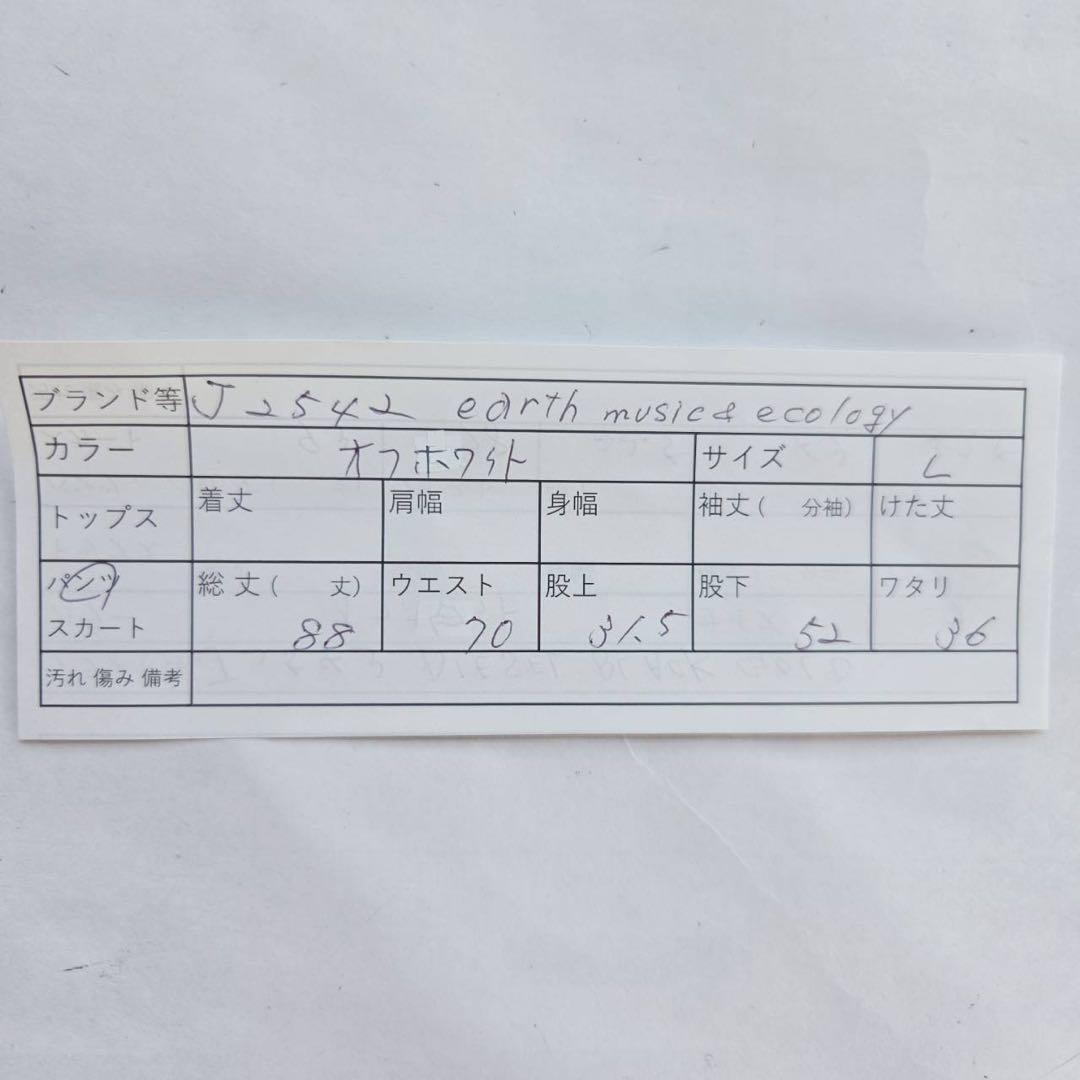 ブランド等 J2542 earth music & ecology
カラー オフホワイト サイズ L
トップス 着丈 肩幅 身幅 袖丈( 分袖) けた丈
パンツ 総丈( 丈) ウエスト 股上 股下 ワタリ
スカート 88 70 31.5 52 36
汚れ 傷み 備考